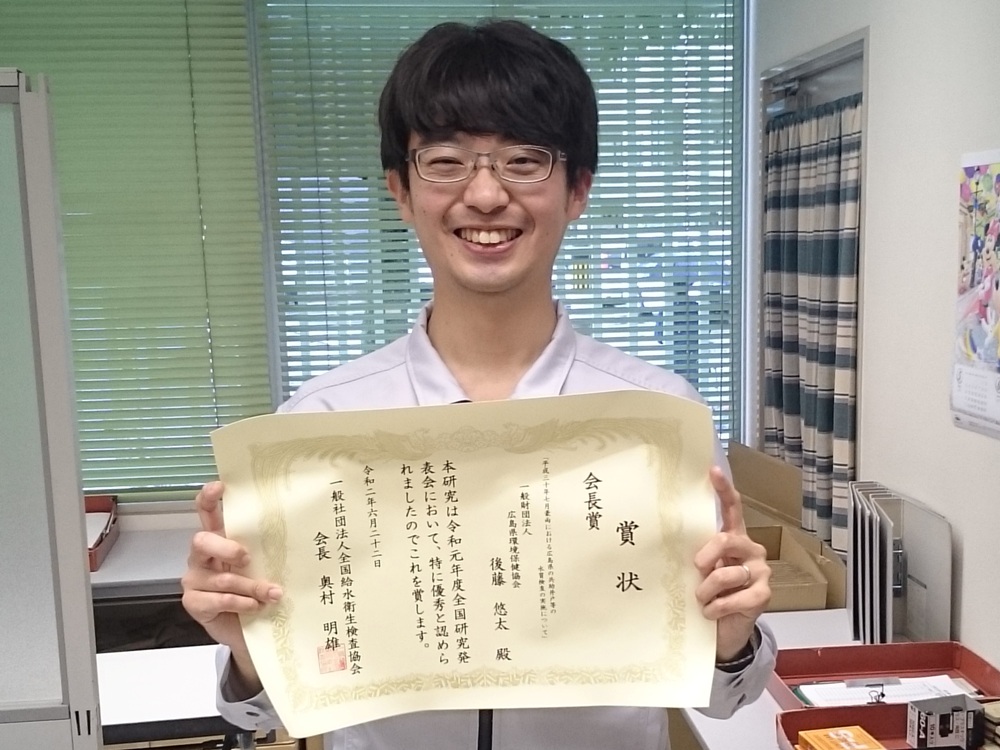 賞状
会長賞
「平成三十年七月豪雨における広島県の共助井戸等の
水質検査の実施について」
一般財団法人
広島県環境保健協会
後藤 悠太 殿
本研究は令和元年度全国研究発
表会において、特に優秀と認めら
れましたのでこれを賞します。
令和二年六月二十二日
一般社団法人全国給水衛生検査協会
会長 奥村 明雄